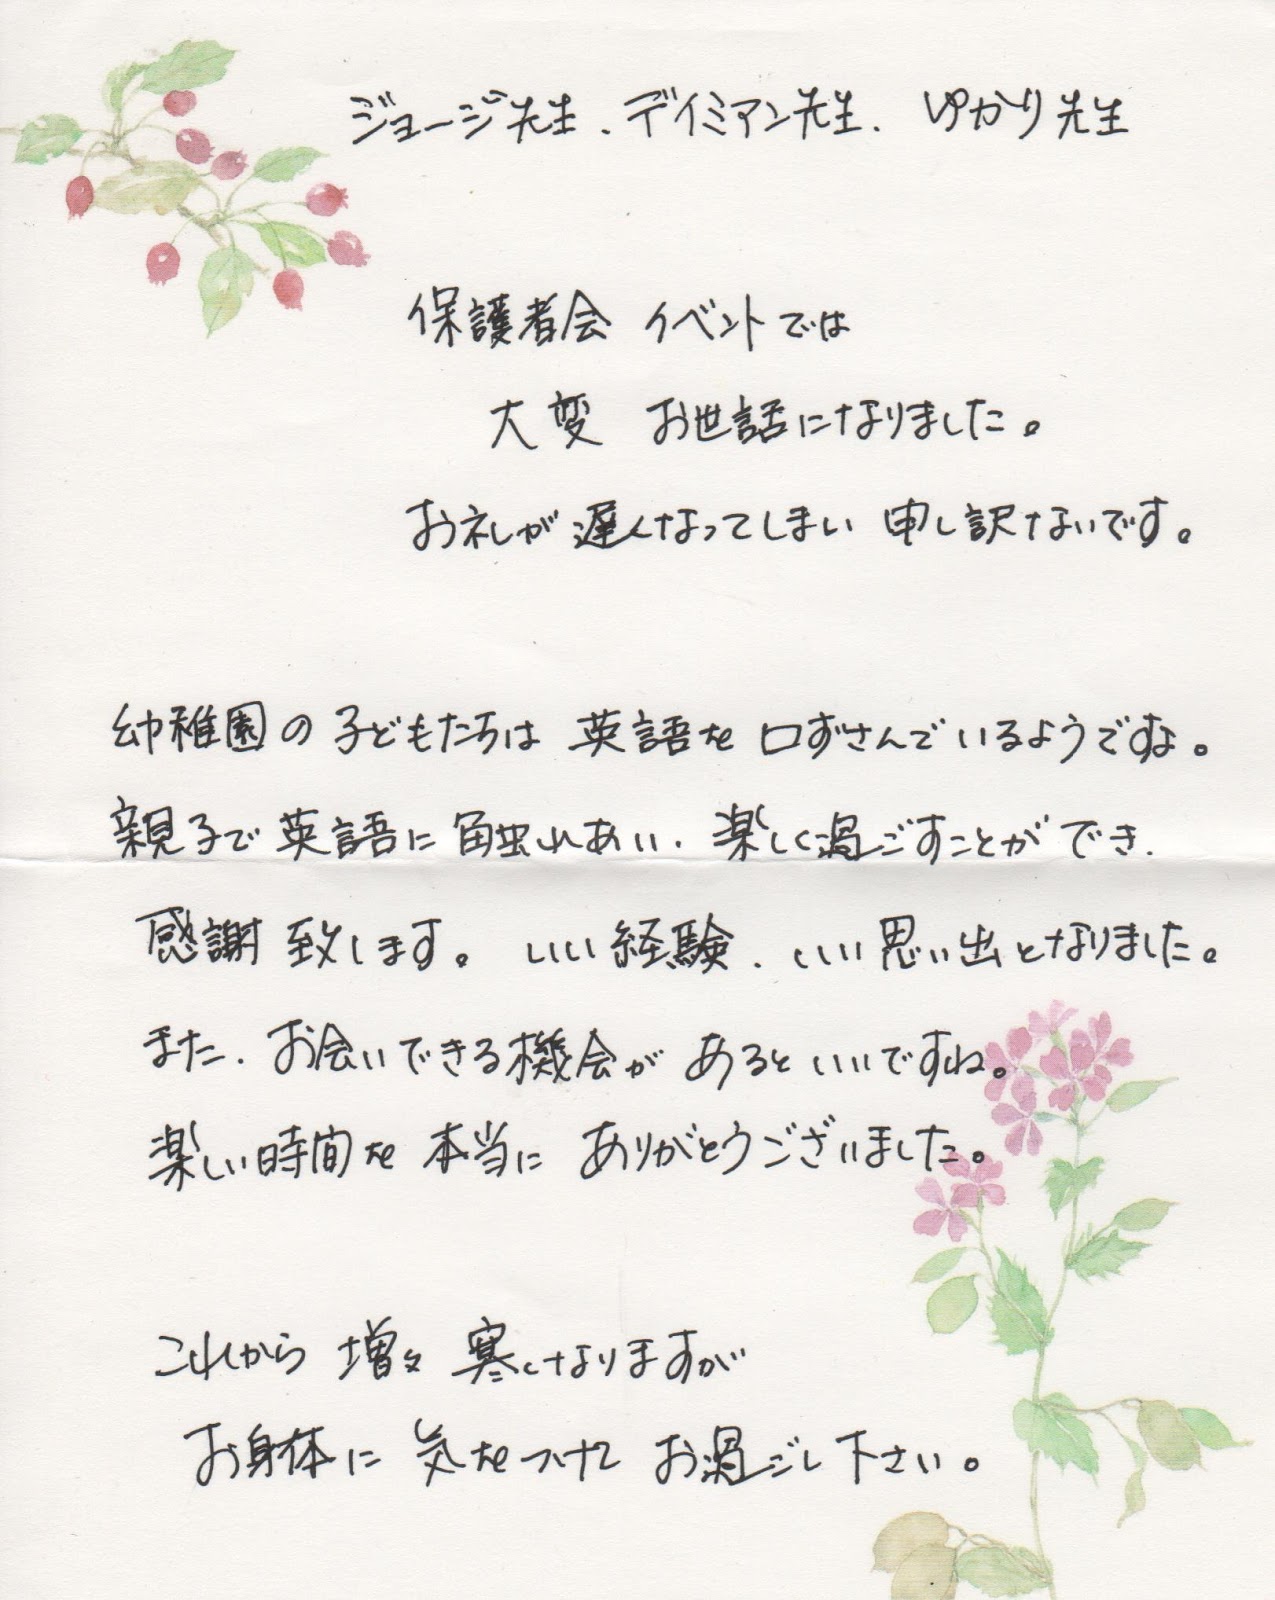 ジョージ先生、デイミアン先生、ゆかり先生
保護者会 イベントでは
大変 お世話になりました。
お礼が遅くなってしまい 申し訳ないです。
幼稚園の子どもたちは 英語を口ずさんでいるようですよ。
親子で英語に触れあい、楽しく過ごすことができ、
感謝致します。いい経験、いい思い出となりました。
また、お会いできる機会が あるといいですね。
楽しい時間を本当に ありがとうございました。
これから 増々 寒くなりますが
お身体に 気をつけて お過ごし下さい。